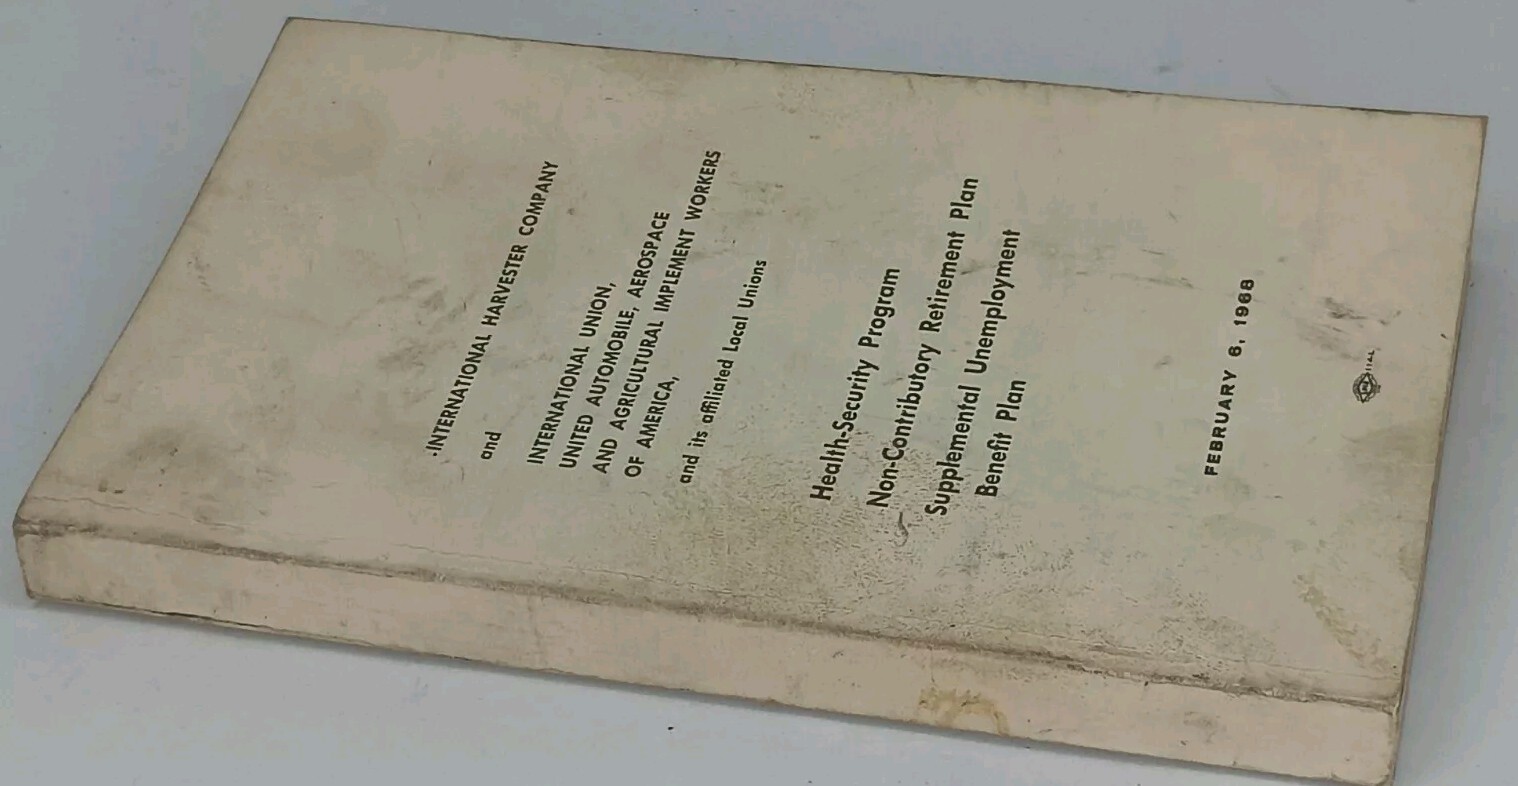 INTERNATIONAL HARVESTER COMPANY
and
INTERNATIONAL UNION,
UNITED AUTOMOBILE, AEROSPACE
AND AGRICULTURAL IMPLEMENT WORKERS
OF AMERICA,
and its affiliated Local Unions
Health-Security Program
Non-Contributory Retirement Plan
Supplemental Unemployment
Benefit Plan
FEBRUARY 6, 1968